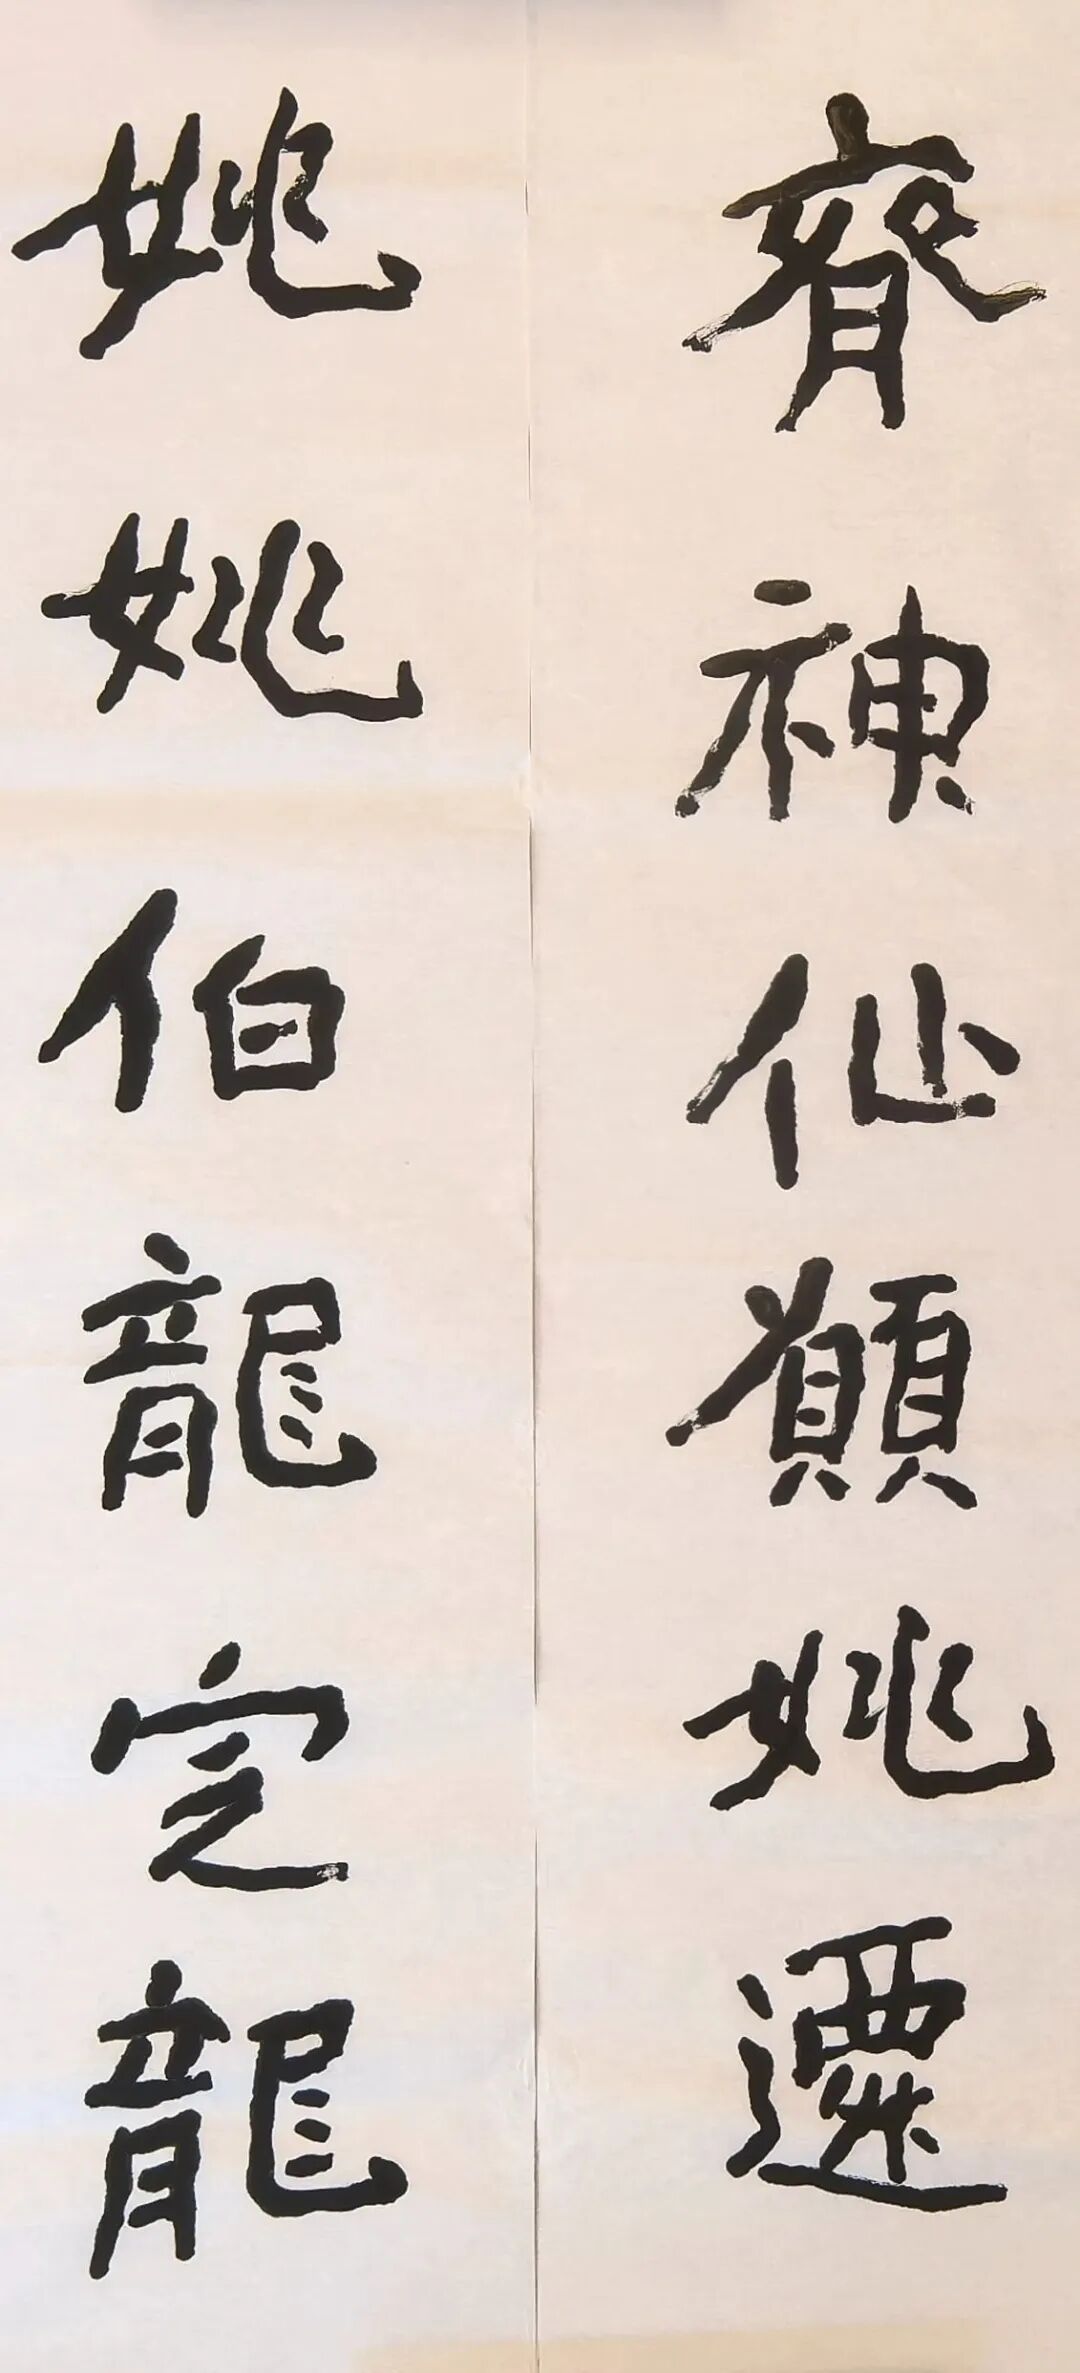 齊神仙願姚遷
姚姚伯龍定龍